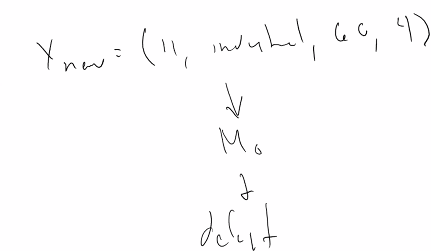 X new = (11, industrial, 60, 4)
↓
M₀
↓
default